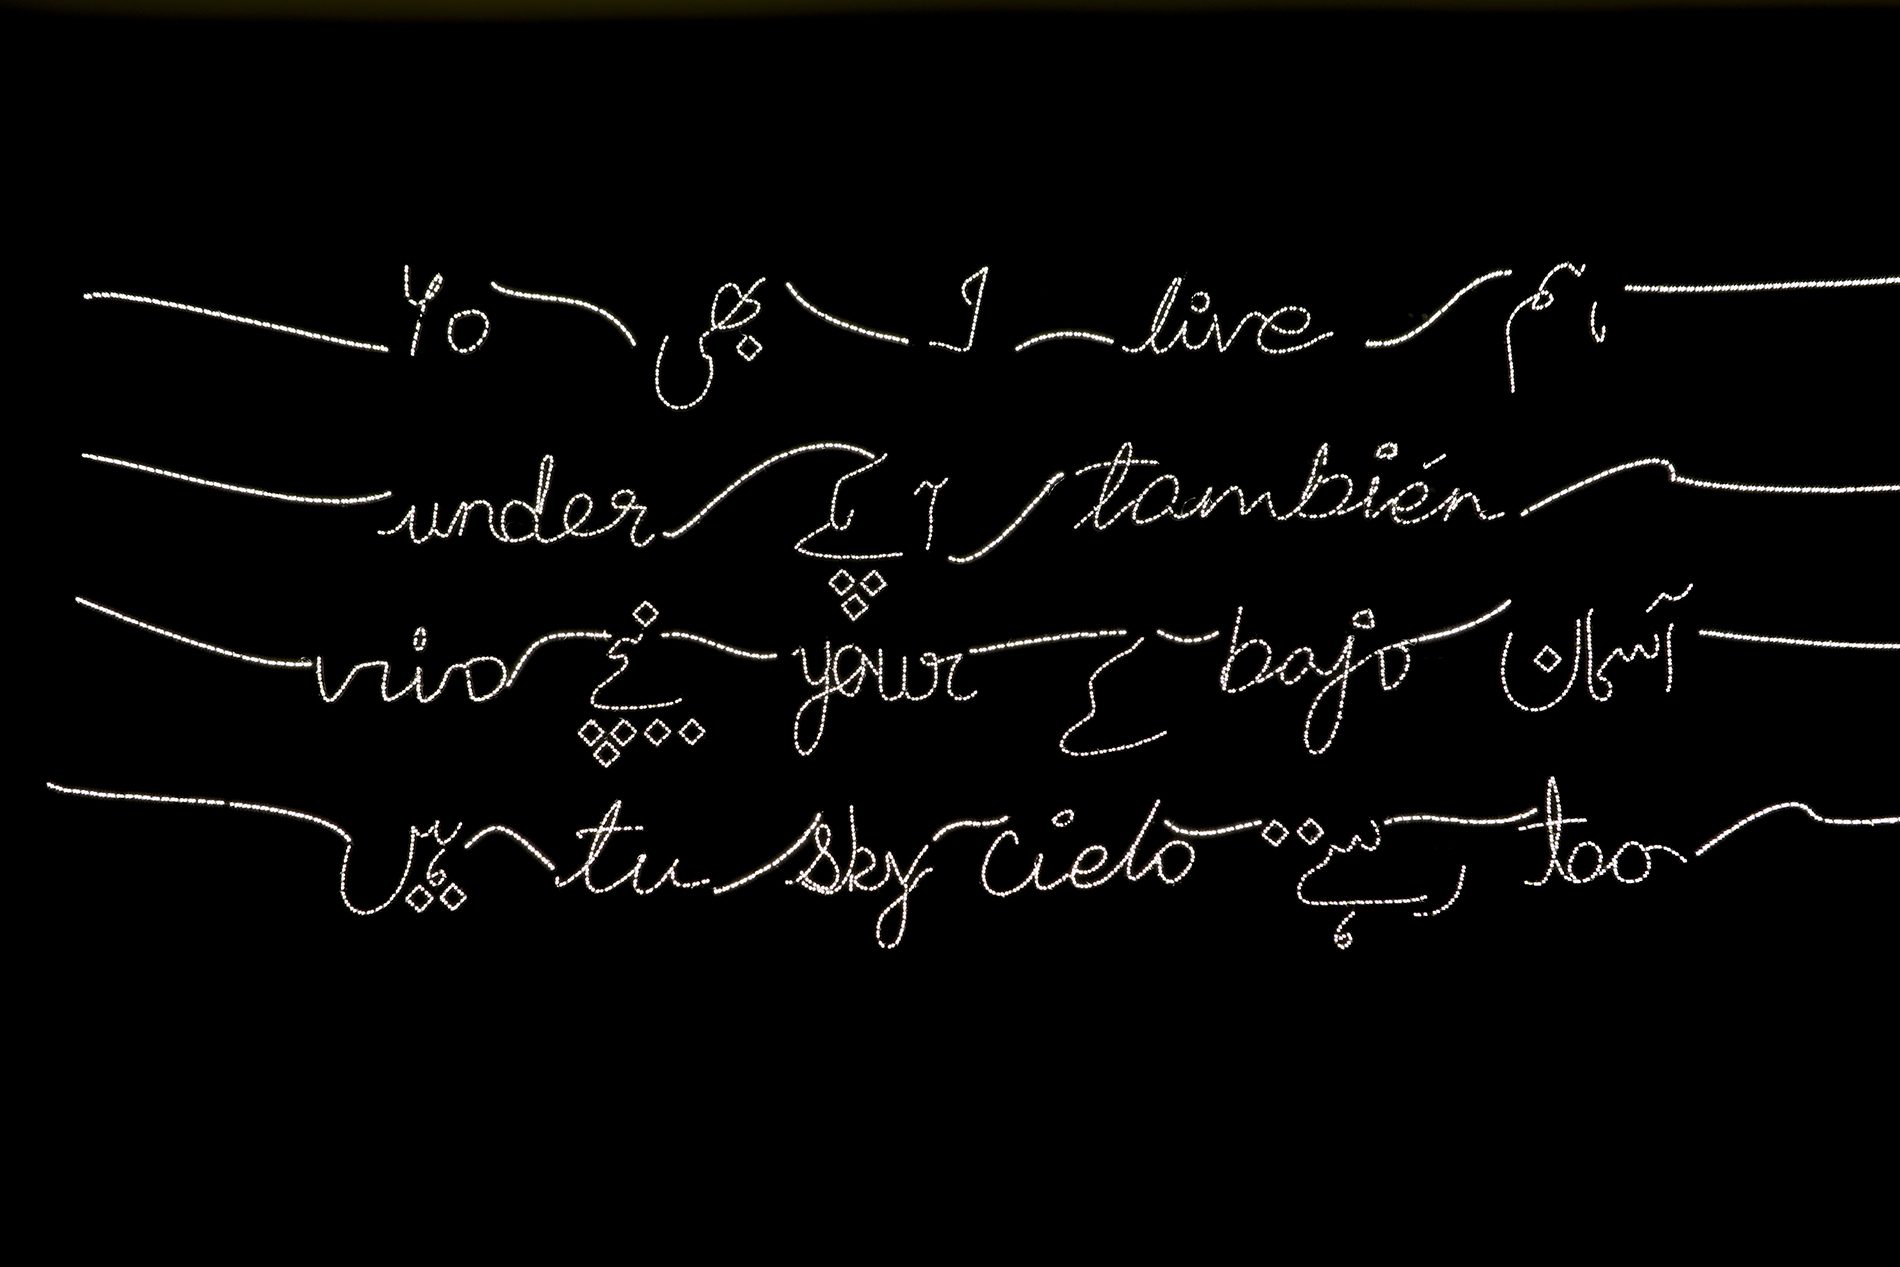 Yo بھی I live ہم
under آپکے también
vivo نیچے your کے bajo آسمان
ہیں tu sky cielo رہتے too